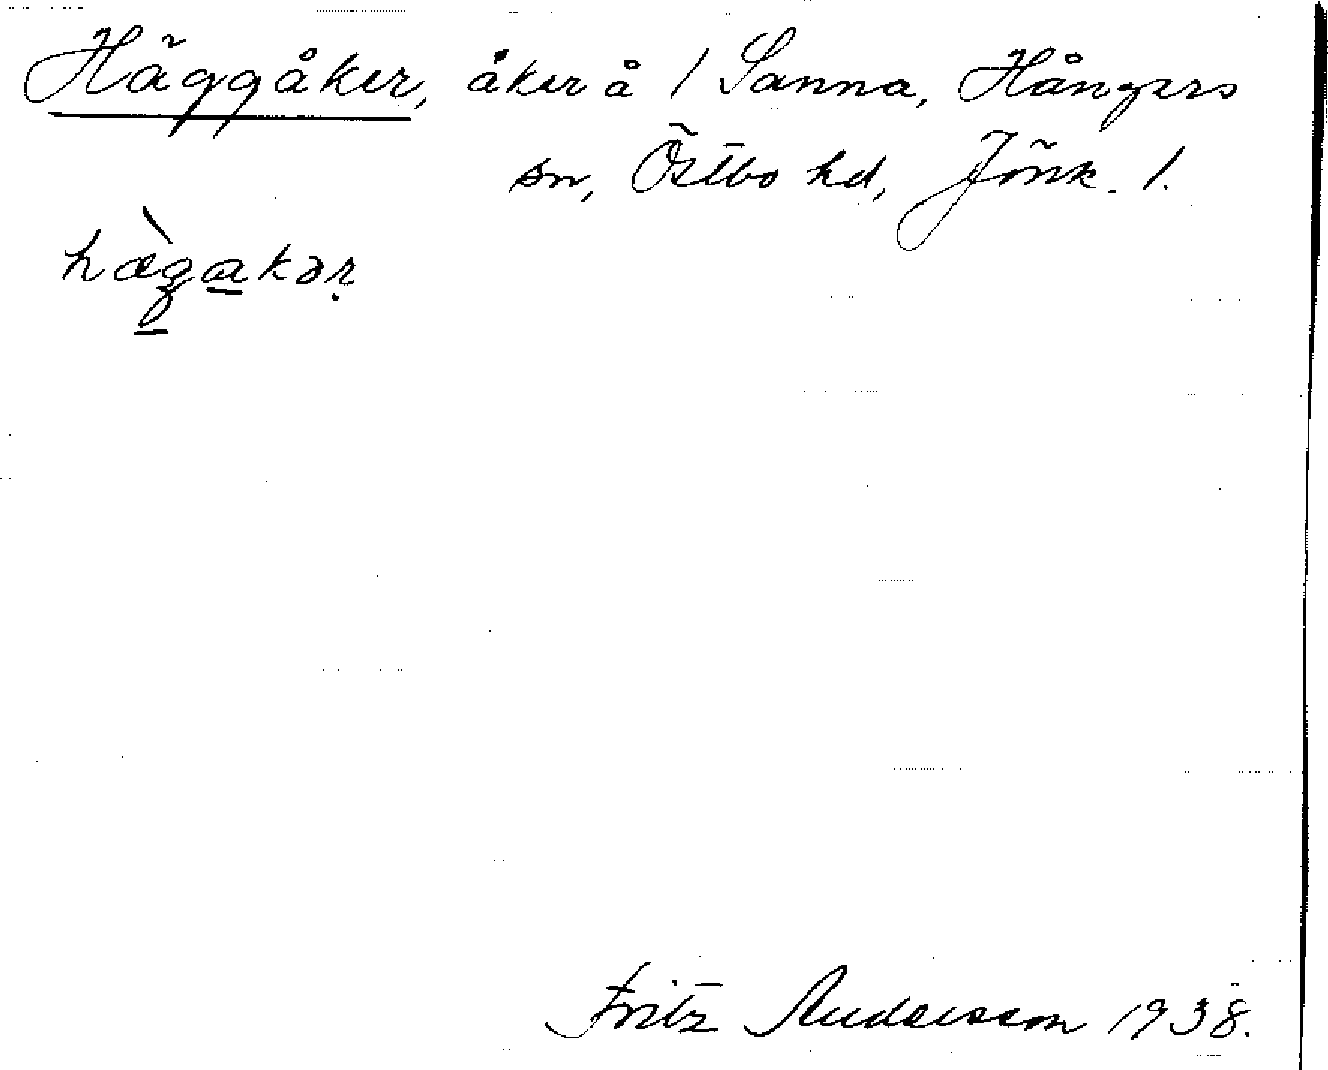 Häggåker, åker å / Sanna, Hångers
sn, Östbo hd, Jönk. l.
hæ̀gakər
Fritz Andersson 1938.